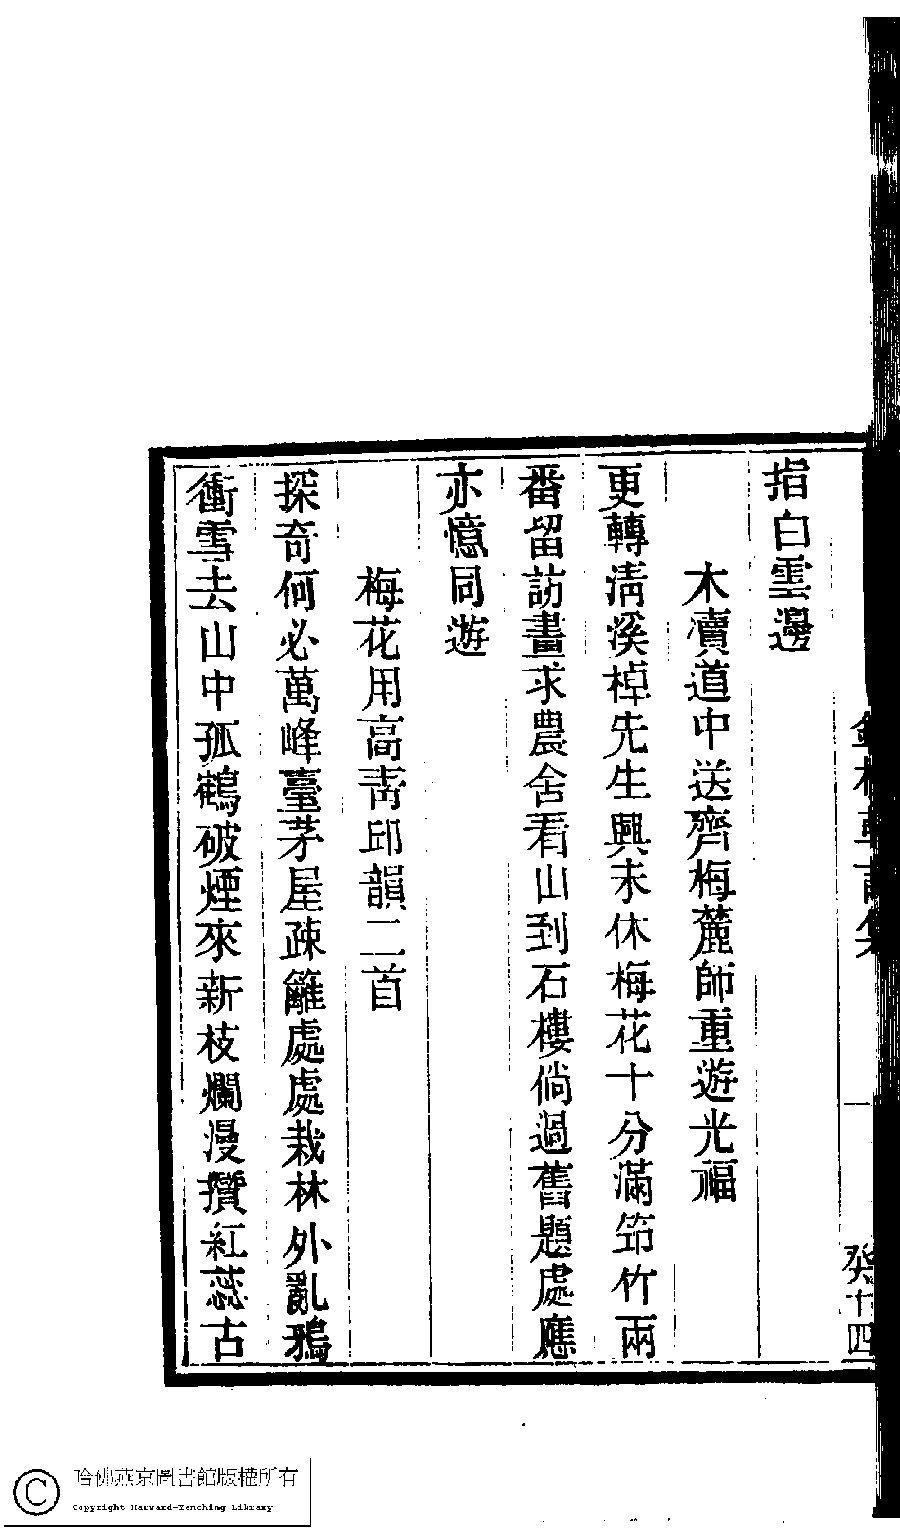 指白雲邊
木瀆道中送齊梅麓師重遊光福
更轉淸溪棹先生興未休梅花十分滿筇竹兩
番留訪畫求農舍看山到石樓倘過舊題處應
亦憶同遊
梅花用高靑邱韻二首
探奇何必萬峰臺茅屋疎籬處處栽林外亂鴉
衝雪去山中孤鶴破煙來新枝爛漫攢紅蕊古
癸十四
哈佛燕京圖書館版權所有
Copyright Harvard-Yenching Library